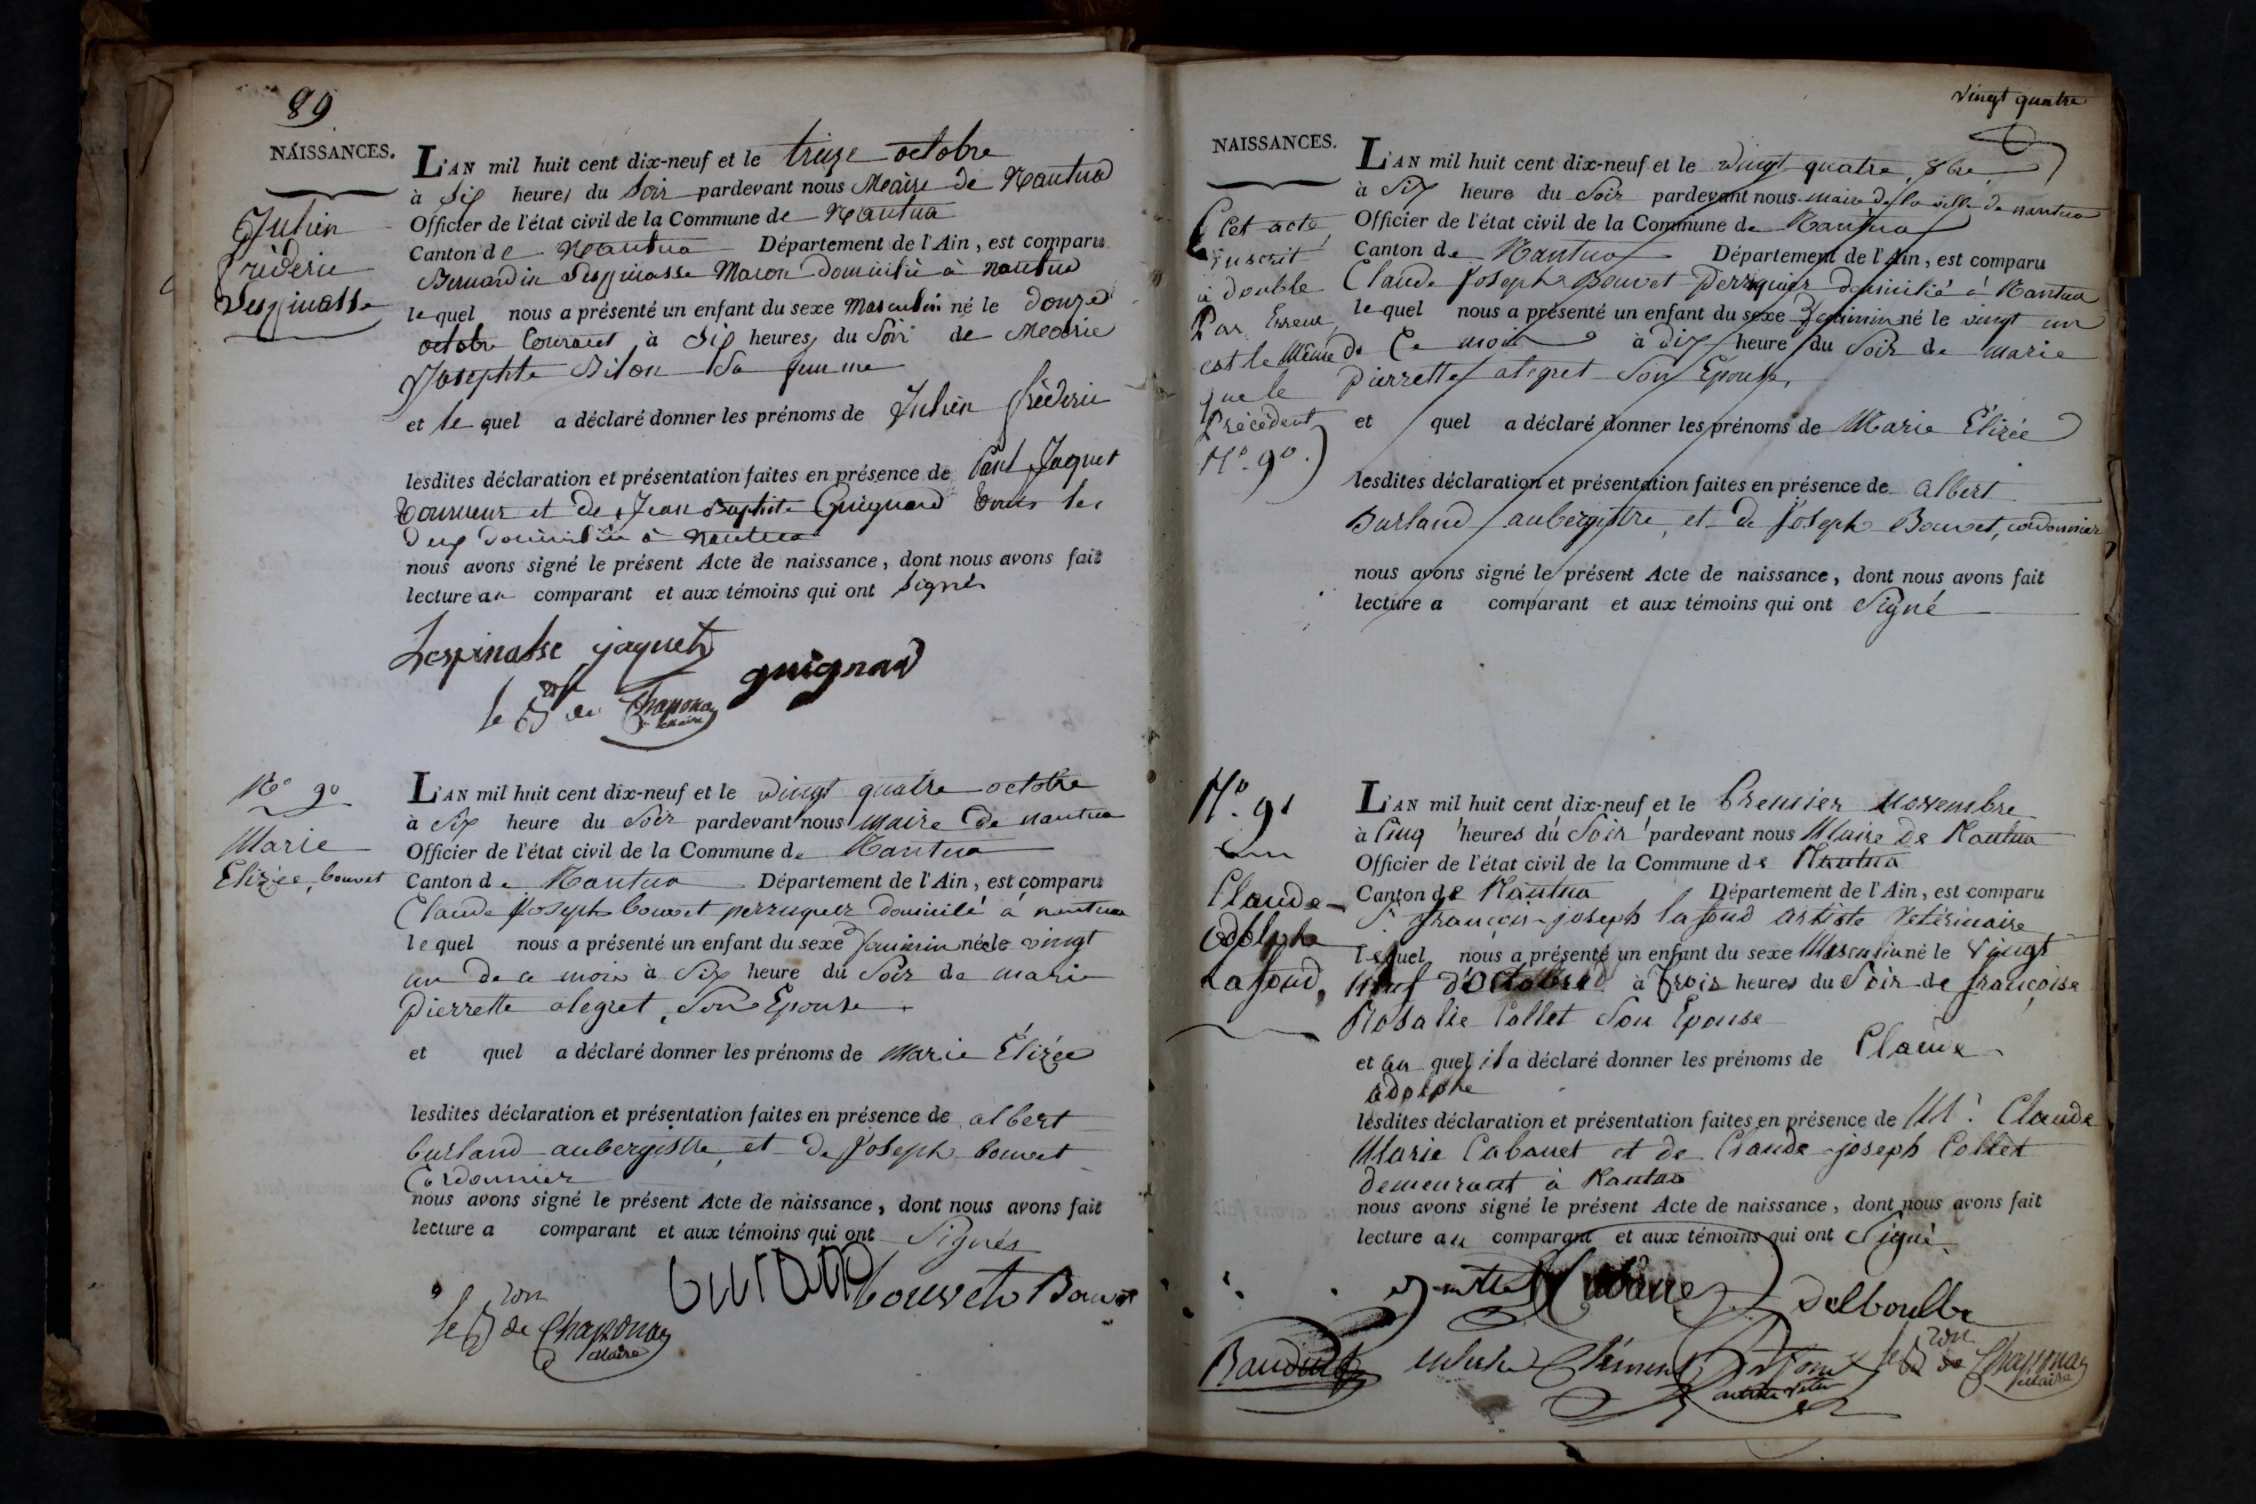 89
NAISSANCES.
Julien
fréderic
Despinasse
L'AN mil huit cent dix-neuf et le treize octobre
à six heures du soir pardevant nous Maire de Nantua
Officier de l'état civil de la Commune de Nantua
Canton de Nantua Département de l'Ain, est comparu
Bernardin Despinasse Macon domicilié à nantua
lequel nous a présenté un enfant du sexe masculin né le douze
octobre Courant à Six heures du Soir de Marie
Josephte Sa femme
et le quel a déclaré donner les prénoms de Julien fréderic
lesdites déclaration et présentation faites en présence de Paul Jaquet
tourneur et de Jean Baptiste Guignard tous les
deux domiciliés à nantua
nous avons signé le présent Acte de naissance, dont nous avons fait
lecture au comparant et aux témoins qui ont signés
Lespinasse jaquet
guignard
le Bon de Chaponay
Maire
No 90
Marie
Elizée, bouvet
L'AN mil huit cent dix-neuf et le vingt quatre octobre
à Six heure du Soir pardevant nous maire de nantua
Officier de l'état civil de la Commune de Nantua
Canton de Nantua Département de l'Ain, est comparu
Claude Joseph bouvet perruquier domicilé à nantua
lequel nous a présenté un enfant du sexe feminin née le vingt
un de ce mois à Six heure du Soir de marie
pierrette alegret, Son Epouse
et quel a déclaré donner les prénoms de Marie Élizée
lesdites déclaration et présentation faites en présence de albert
burland aubergistre, et de Joseph bouvet
Cordonnier
nous avons signé le présent Acte de naissance, dont nous avons fait
lecture a comparant et aux témoins qui ont Signés
bouvet Bouvet
le Bon de Chaponay
Maire
vingt quatre
NAISSANCES.
Cet acte
inscrit
à double
Par Erreur,
est le Même
que le
Précédent
No. 90.
L'AN mil huit cent dix-neuf et le vingt quatre 8bre
à Six heure du Soir pardevant nous maire de la ville de nantua
Officier de l'état civil de la Commune de Nantua
Canton de Nantua Département de l'Ain, est comparu
Claude Joseph Bouvet perruquier domicilié à Nantua
lequel nous a présenté un enfant du sexe feminin né le vingt un
de Ce mois à dix heure du Soir de marie
pierrette alegret Son Epouse,
et quel a déclaré donner les prénoms de Marie Élizée
lesdites déclaration et présentation faites en présence de Albert
Burland aubergistre, et de Joseph Bouvet, cordonnier
nous avons signé le présent Acte de naissance, dont nous avons fait
lecture a comparant et aux témoins qui ont Signé
No. 91
Claude
adolphe
Lafond,
L'AN mil huit cent dix-neuf et le Premier Novembre
à Cinq heures du Soir pardevant nous Maire de Nantua
Officier de l'état civil de la Commune de Nantua
Canton de Nantua Département de l'Ain, est comparu
Sr. françois-joseph lafond artiste vétérinaire
lequel nous a présenté un enfant du sexe Masculin né le Vingt
Neuf d'Octobre à trois heures du Soir de françoise
Rosalie Collet Son Epouse
et au quel il a déclaré donner les prénoms de Claude
adolphe
lesdites déclaration et présentation faites en présence de Mr. Claude
Marie Cabanet et de Claude-joseph Collet
demeurant à Nantua
nous avons signé le présent Acte de naissance, dont nous avons fait
lecture au comparant et aux témoins qui ont Signé
Delboulbe
Clément
le Bon de Chaponay
Maire